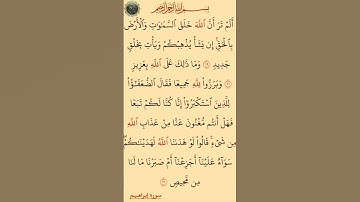 بسم الله الرحمن الرحيم
أَلَمْ تَرَ أَنَّ ٱللَّهَ خَلَقَ ٱلسَّمَٰوَٰتِ وَٱلْأَرْضَ
بِٱلْحَقِّ إِن يَشَأْ يُذْهِبْكُمْ وَيَأْتِ بِخَلْقٍ
جَدِيدٍ ١٩ وَمَا ذَٰلِكَ عَلَى ٱللَّهِ بِعَزِيزٍ
٢٠ وَبَرَزُوا۟ لِلَّهِ جَمِيعًا فَقَالَ ٱلضُّعَفَٰٓؤُا۟
لِلَّذِينَ ٱسْتَكْبَرُوٓا۟ إِنَّا كُنَّا لَكُمْ تَبَعًا
فَهَلْ أَنتُم مُّغْنُونَ عَنَّا مِنْ عَذَابِ ٱللَّهِ
مِن شَىْءٍ قَالُوا۟ لَوْ هَدَىٰنَا ٱللَّهُ لَهَدَيْنَٰكُمْ
سَوَآءٌ عَلَيْنَآ أَجَزِعْنَآ أَمْ صَبَرْنَا مَا لَنَا
مِن مَّحِيصٍ ٢١
سورة إبراهيم